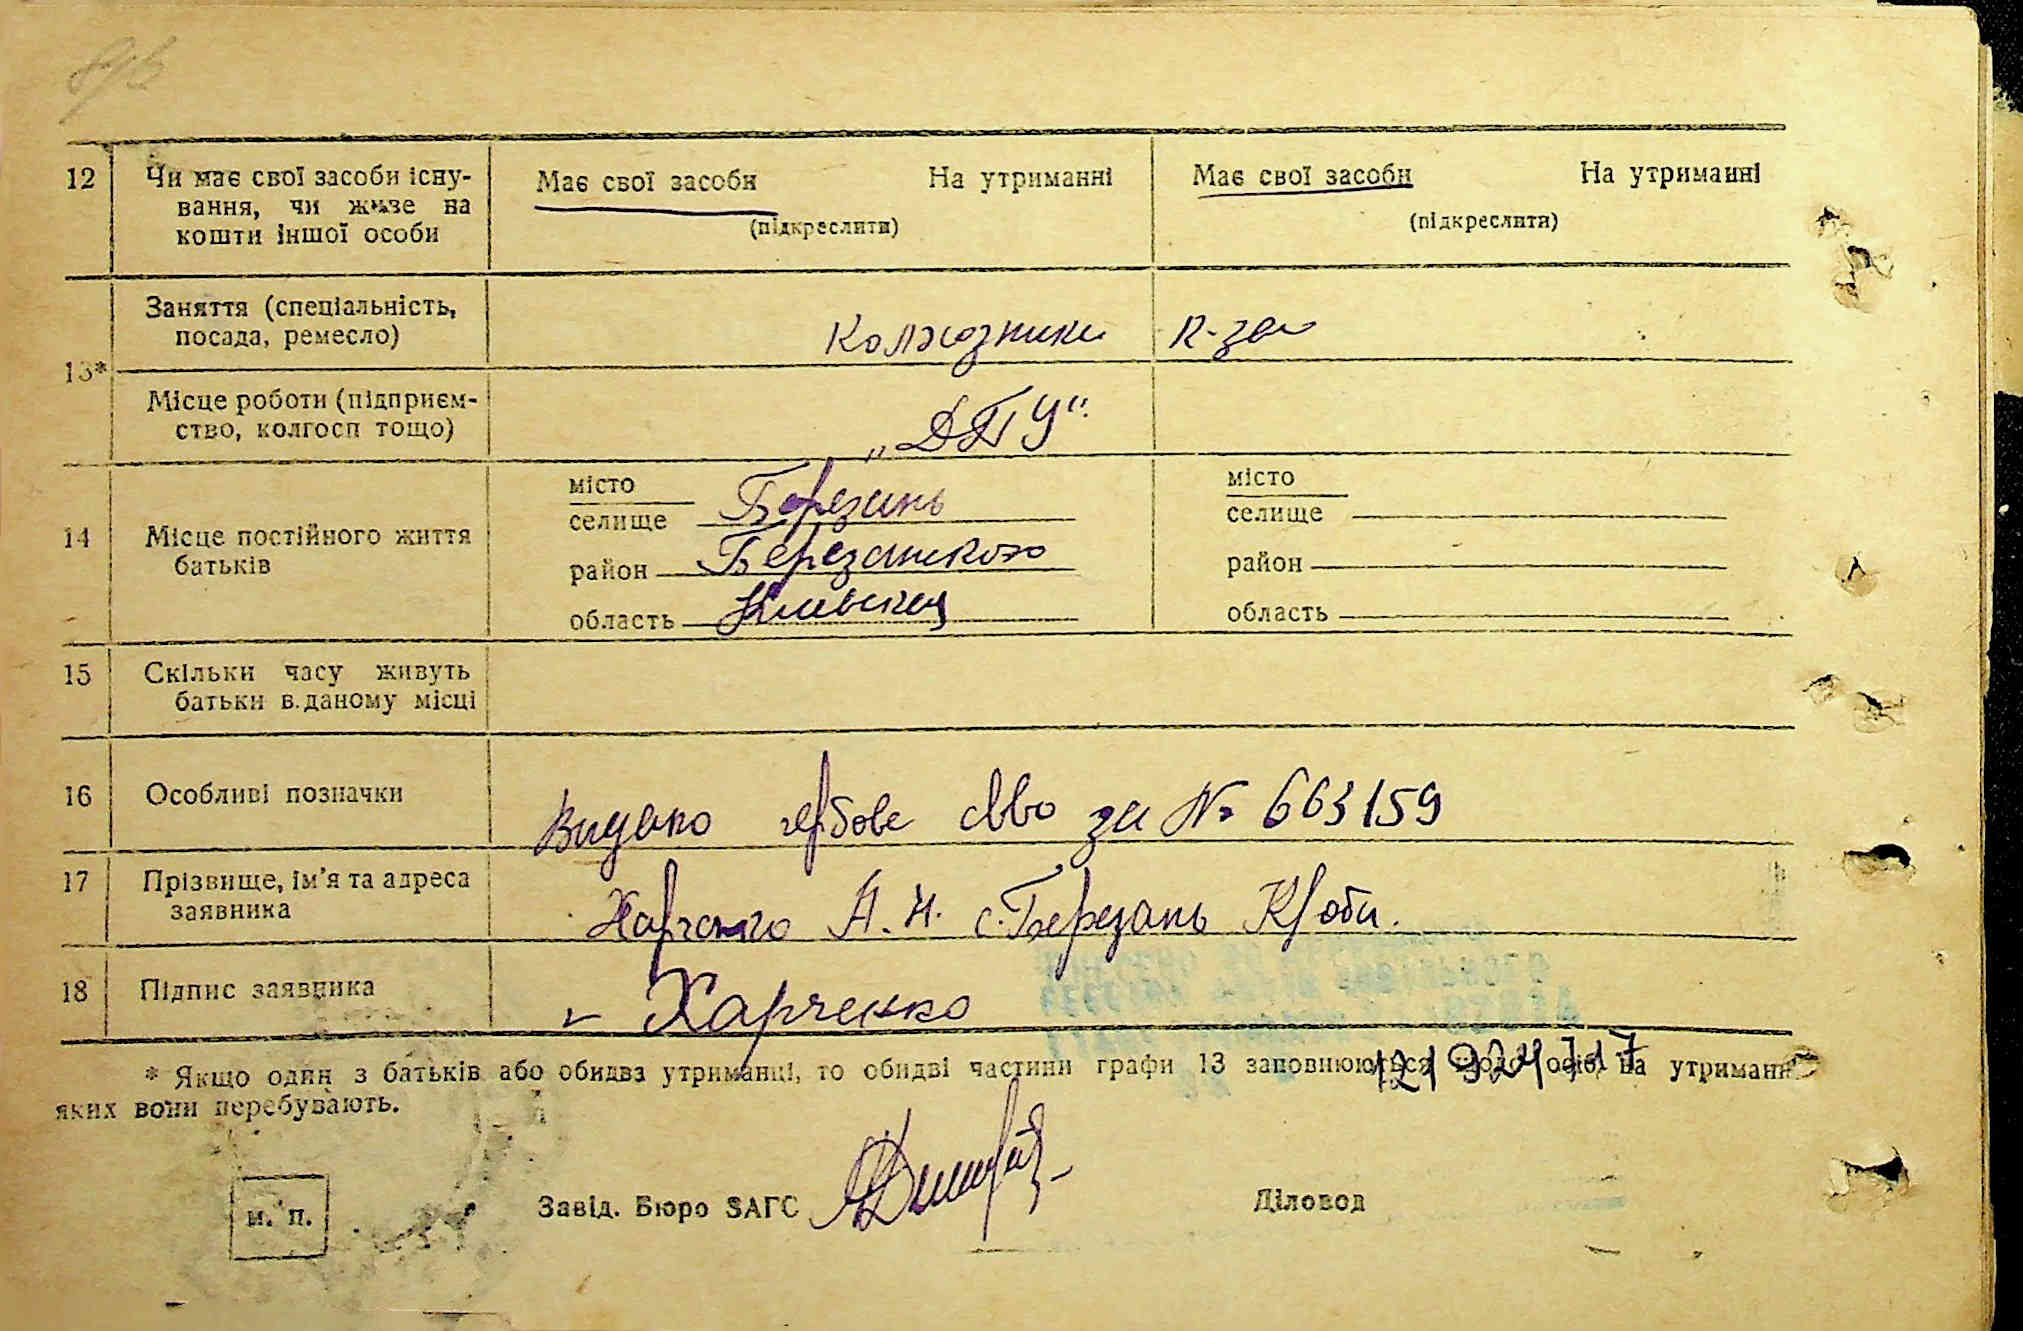 12 Чи має свої засоби існу- Має свої засоби На утриманні Має свої засоби На утриманні
вання, чи живе на (підкреслити) (підкреслити)
кошти іншої особи
Заняття (спеціальність,
посада, ремесло) Колхозники к-за
13*
Місце роботи (підприєм- „ДПУ“
ство, колгосп тощо)
місто місто
селище Березань селище
14 Місце постійного життя
батьків район Березанского район
область Киевская область
15 Скільки часу живуть
батьки в даному місці
16 Особливі позначки Видано гербове св-во за № 663159
17 Прізвище, ім'я та адреса
заявника Харченко А. Н. с. Березань К/оби.
18 Підпис заявника Харченко
* Якщо один з батьків або обидва утриманці, то обидві частини графи 13 заповнюються щодо осіб, на утриманні
яких вони перебувають.
м. п. Завід. Бюро ЗАГС Діловод